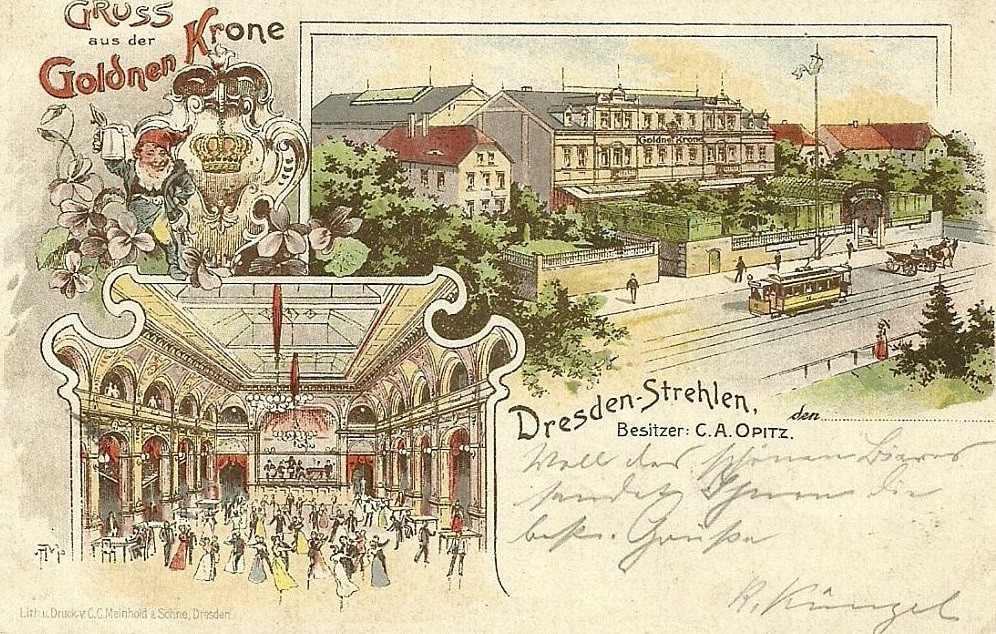 GRUSS
aus der
Goldnen Krone
Goldne Krone
Dresden-Strehlen,
den
Besitzer: C. A. OPITZ.
Voll des schönen Bieres
sendet Ihnen die
best. Grüße
R. Künzel
Lith. u. Druck v. C. C. Meinhold & Söhne, Dresden